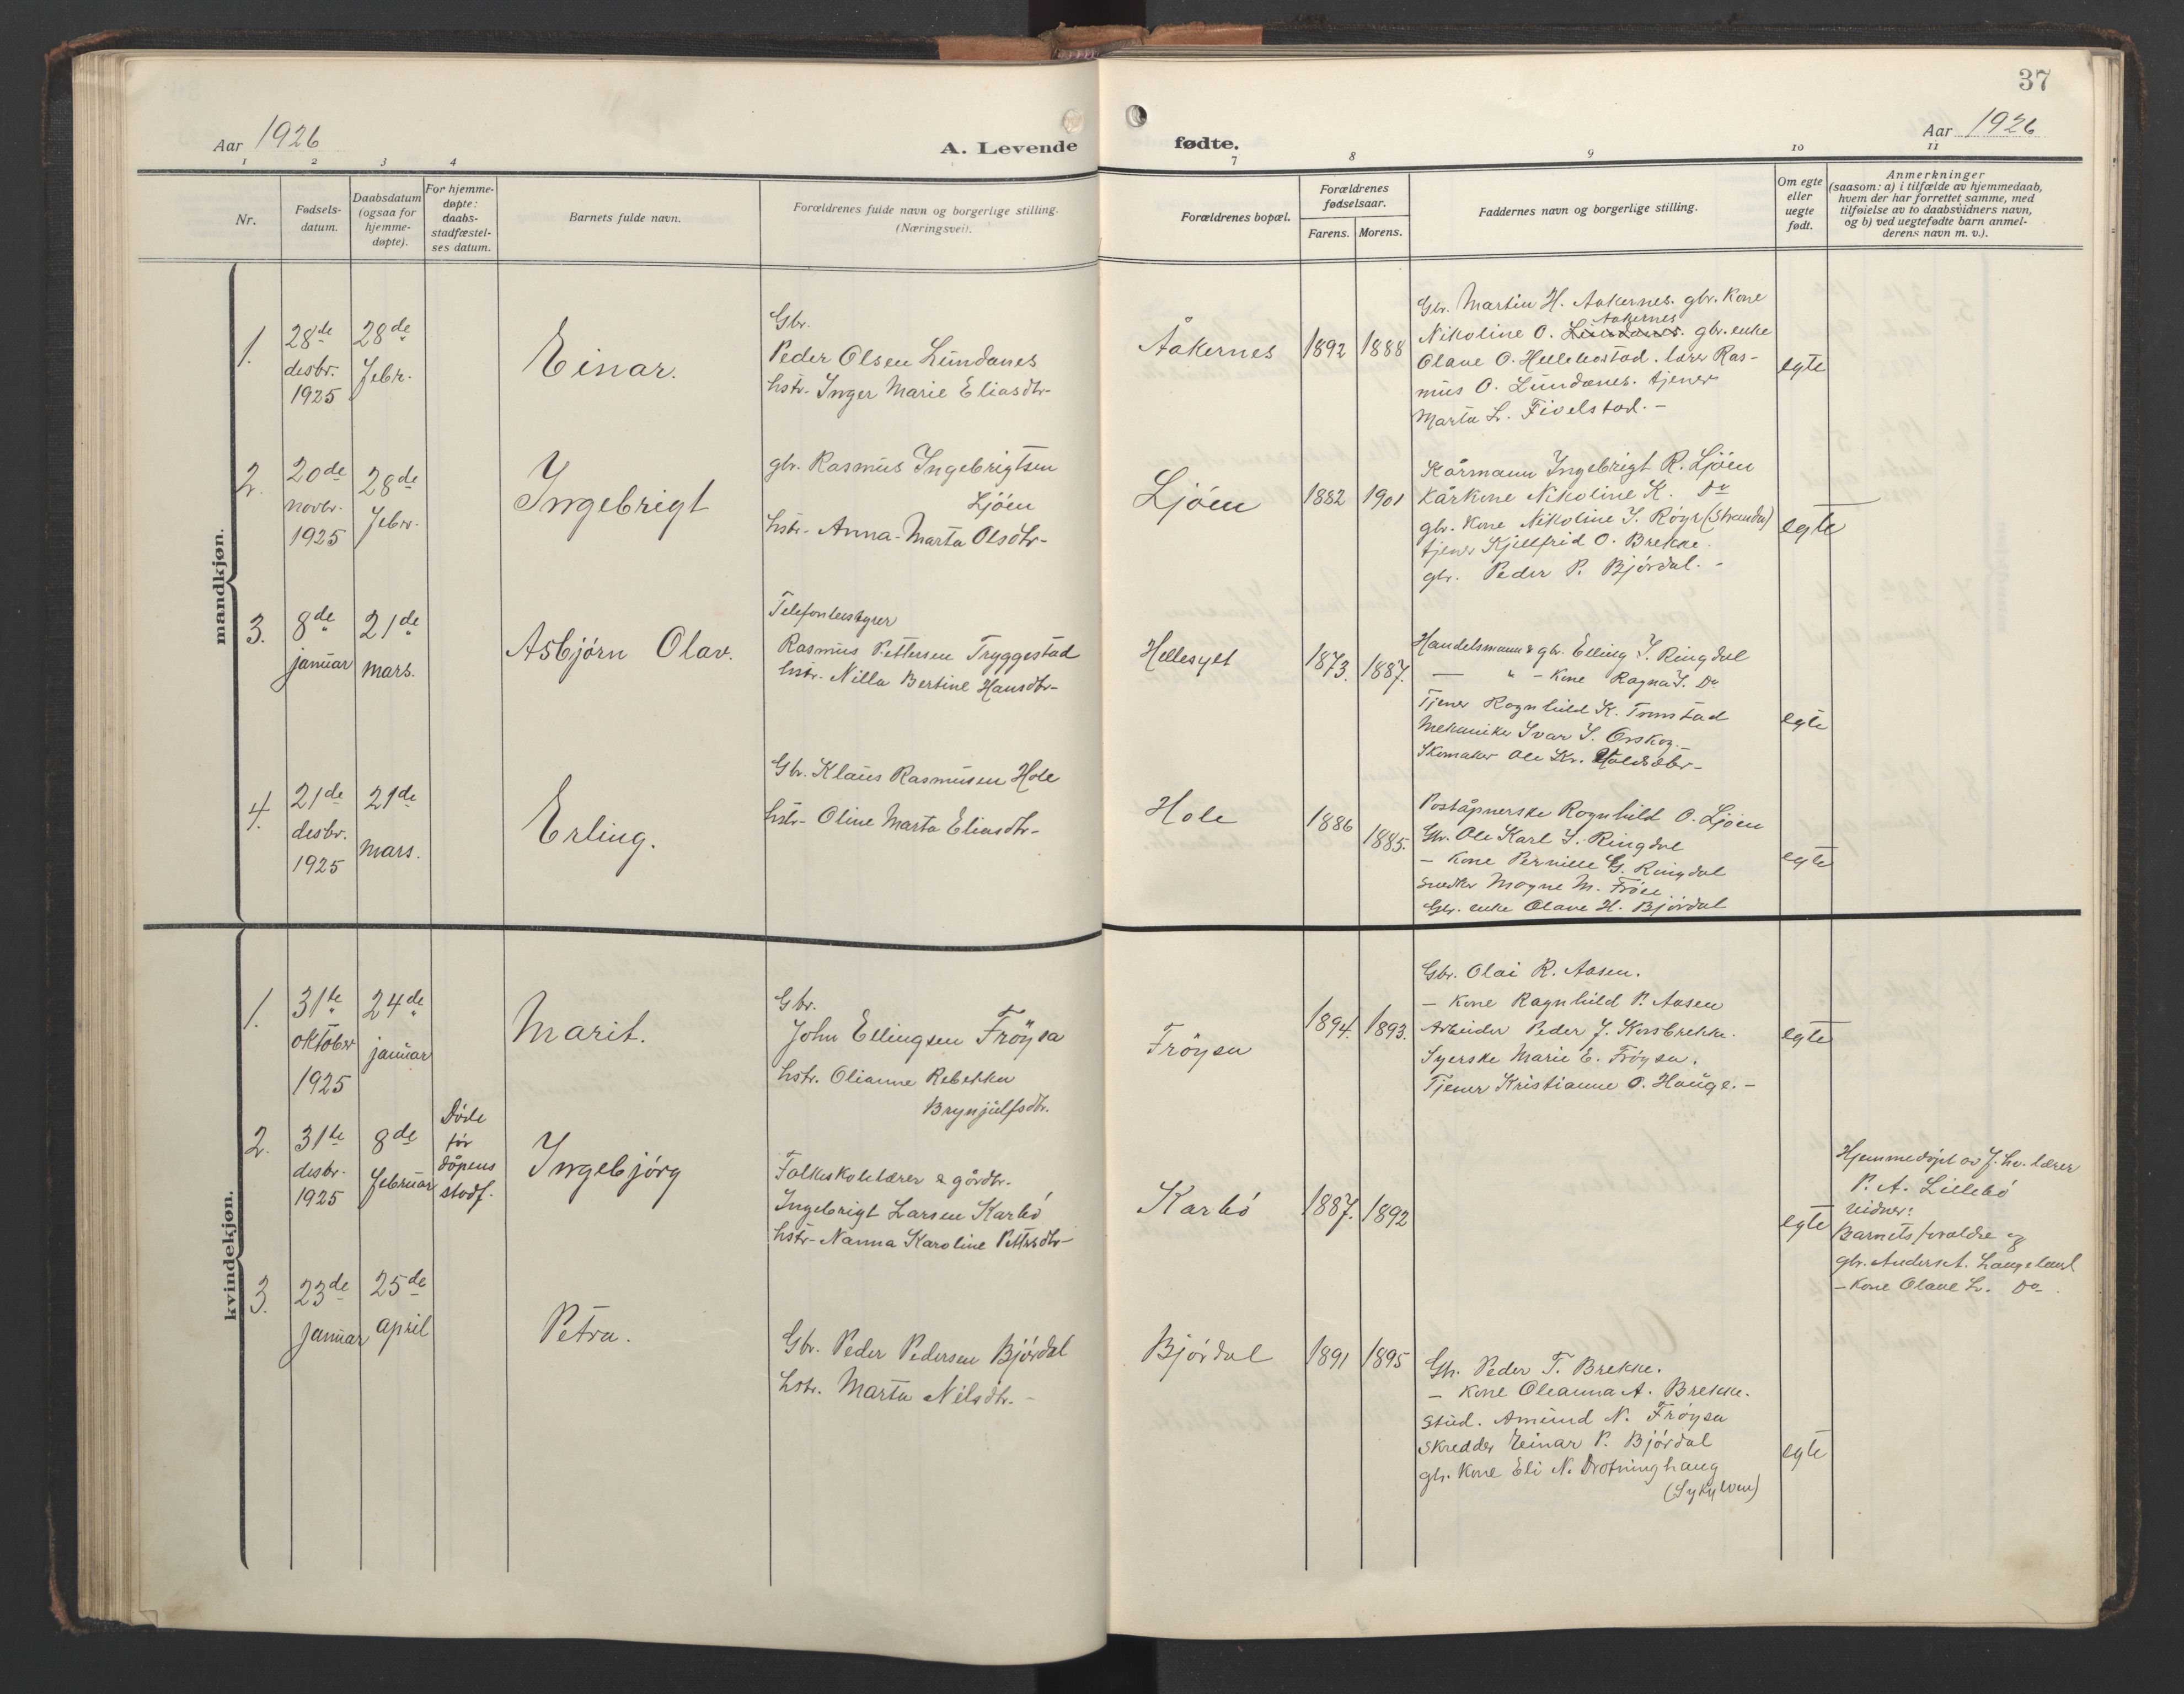 37
Aar 1926
A. Levende
fødte.
Aar 1926
1 2 3 4
7 8 9 10 11
Nr.
Fødsels-
datum.
Daabsdatum
(ogsaa for
hjemme-
døpte).
For hjemme-
døpte:
daabs-
stadfæstel-
ses datum.
Barnets fulde navn.
Forældrenes fulde navn og borgerlige stilling.
(Næringsvei).
Forældrenes bopæl.
Forældrenes
fødselsaar.
Farens. Morens.
Faddernes navn og borgerlige stilling.
Om egte
eller
uegte
født.
Anmerkninger
(saasom: a) i tilfælde av hjemmedaab,
hvem der har forrettet samme, med
tilføielse av to daabsvidners navn,
og b) ved uegtefødte barn anmel-
derens navn m. v.).
mandkjøn.
1.
28de
desbr.
1925
28de
Febr.
Einar.
Gbr.
Peder Olsen Lundanes
hstr. Inger Marie Eliasdtr-
Åakernes
1892
1888
Gbr. Martin H. Aakernes. gbr. Kone
Aakernes
Nikoline O. Lundanes. gbr. enke
Olave O. Hellebostad. lærer Ras-
mus O. Lundanes. tjener
Marta L. Fivelstad. -
egte
2.
20de
novbr.
1925
28de
Febr.
Ingebrigt
gbr. Rasmus Ingebrigtsen
Ljöen
hstr- Anna-Marta Olsdtr-
Ljöen
1882
1901
Kårmann Ingebrigt R. Ljöen
Kårkone Nikoline K. Do
gbr. Kone Nikoline I. Röyr (Stranda)
tjener Kjellfrid O. Brekke.
gbr. Peder P. Björdal. -
egte
3.
8de
januar
21de
mars.
Asbjörn Olav.
Telefonbestyrer
Rasmus Pettersen Tryggestad
hstr. Nilla Bertine Hansdtr-
Hellesylt
1873.
1887.
Handelsmann & gbr. Elling I. Ringdal
— " - Kone Ragna I. Do
Tjener Ragnhild K. Tronstad
Mekaniker Ivar I. Örskog.-
Skomaker Ole Kr.
egte
4.
21de
desbr.
1925
21de
mars.
Erling.
Gbr. Klaus Rasmusen Hole
hstr- Oline Marta Eliasdtr-
Hole
1886
1885.
Poståpnerske Ragnhild O. Ljöen
Gbr. Ole Karl I. Ringdal
- Kone Pernille G. Ringdal
Snedker Magne M. Fröise
Gbr. enke Olave H. Björdal
egte
kvindekjøn.
1.
31te
oktober
1925
24de
januar
Marit.
Gbr.
John Ellingsen Fröysa
hstr. Olianne Rebekka
Brynjulfsdtr.
Fröysa
1894.
1893.
Gbr. Olai R. Aasen.
- Kone Ragnhild P. Aasen
Arbeider Peder J. Korsbrekke.
Syerske Marie E. Fröysa.
Tjener Kristianne O. Hauge. -
egte
2.
31te
desbr.
1925
8de
Februar
Döde
för
dåpens
stadf.
Ingebjörg
Folkeskolelærer & gårdbr.
Ingebrigt Larsen Karbö
hstr- Nanna Karoline Pettersdtr-
Karbö
1887.
1892
egte
Hjemmedöpt av f. hv. lærer
P. A. Lillebö
vidner:
Barnets forældre og
gbr. Anders A. Langeland
- Kone Olave L. Do
3.
23de
januar
25de
april
Petra.
Gbr. Peder Pedersen Björdal
hstr. Marta Nilsdtr. -
Björdal
1891
1895
Gbr. Peder T. Brekke.
- Kone Oleanna A. Brekke.
Stud. Amund N. Fröysa
Skredder Einar P. Björdal
gbr. Kone Eli N. Drotninghaug
(Sykylven)
egte